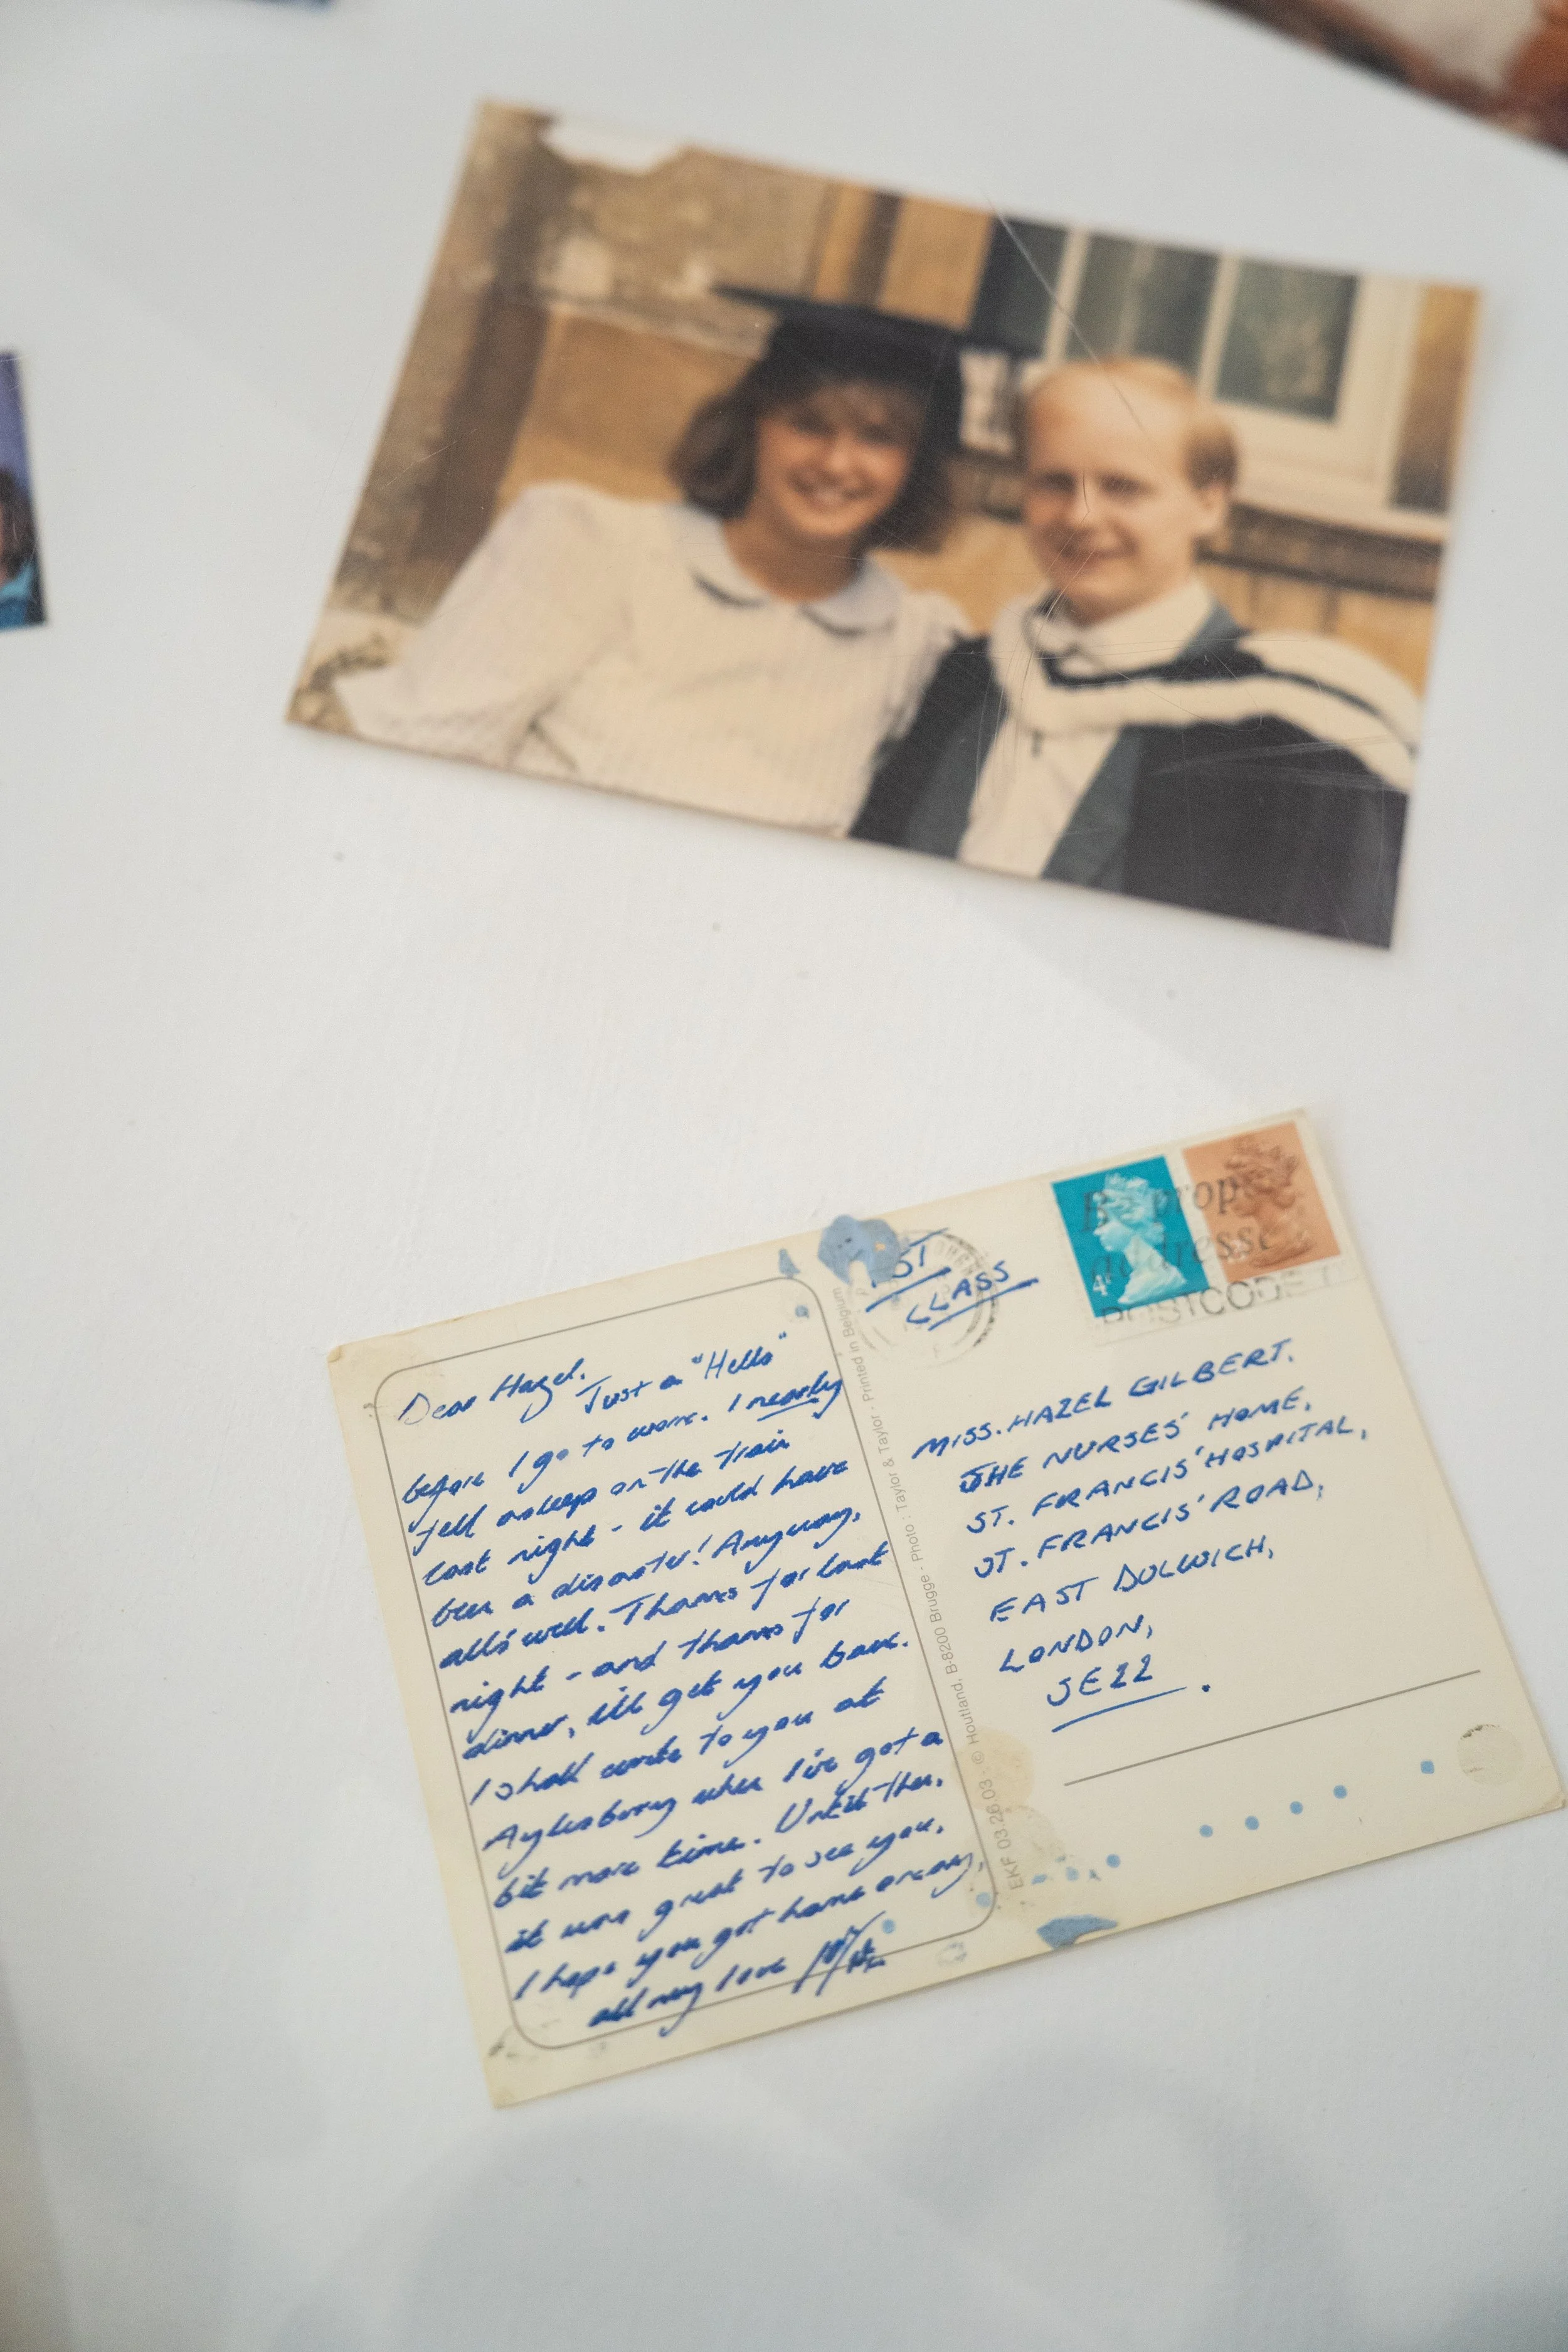 Dear Hazel.
Just a "Hello"
before I go to work. I nearly
fell asleep on the train
last night - it could have
been a disaster! Anyway,
all's well. Thanks for last
night - and thanks for
dinner, i'll get you back.
I shall write to you at
Aylesbury when I've got a
bit more time. Until then,
it was great to see you,
I hope you got home okay,
all my love
EKF 03.26.03 - © Houtland, B-8200 Brugge - Photo : Taylor & Taylor - Printed in Belgium
1ST
CLASS
4
Be prop
addresse
POSTCODE
MISS. HAZEL GILBERT.
THE NURSES' HOME,
ST. FRANCIS' HOSPITAL,
ST. FRANCIS' ROAD,
EAST DULWICH,
LONDON,
SE22.